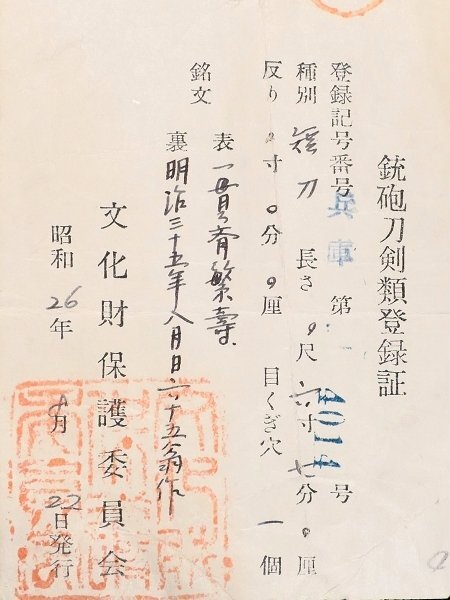 銃砲刀剣類登録証
登録記号番号 兵庫 第 号
種別 短刀 長さ 0尺 六寸 七分 0厘
反り 0寸 0分 0厘 目くぎ穴 一個
銘文 表 一貫斉繁寿
裏 明治三十五年八月日六十五翁作
文化財保護委員会
昭和 26年 月 22日発行